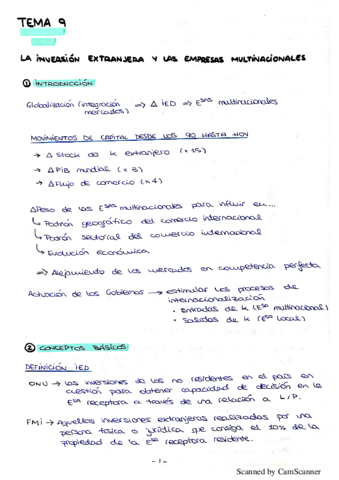 TEMA 9
LA INVERSIÓN EXTRANJERA Y LAS EMPRESAS MULTINACIONALES
① INTRODUCCIÓN
Globalización (integración mercados) => Δ IED => Esas multinacionales
MOVIMIENTOS DE CAPITAL DESDE LOS 90 HASTA HOY
→ Δ Stock de k extranjero (x 15)
→ Δ PiB mundial (x 3)
→ Δ Flujo de comercio (x 4)
ΔPeso de las Esas multinacionales para influir en...
↳ Patrón geográfico del comercio internacional
↳ Patrón sectorial del comercio internacional
↳ Evolución económica
=> Alejamiento de los mercados en competencia perfecta
Actuación de los Gobiernos → estimular los procesos de
internacionalización
· Entradas de k (Esa multinacional)
· Salidas de k (Esa local)
② CONCEPTOS BÁSICOS
DEFINICIÓN IED
ONU → las inversiones de los no residentes en el país en
cuestión para obtener capacidad de decisión en la
Esa receptora a través de una relación a L/P.
FMI → Aquellas inversiones extranjeras realizadas por una
persona física o jurídica que consiga el 10% de la
propiedad de la Esa receptora residente.
- 1 -
Scanned by CamScanner